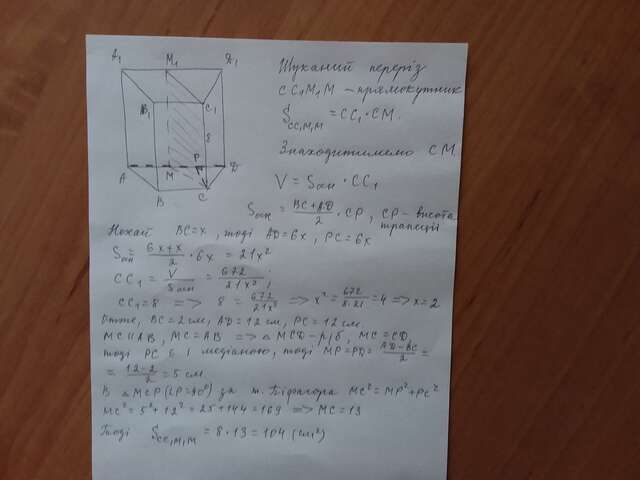 A₁ M₁ D₁
B₁ C₁
8
P
A M D
B C
Шуканий переріз
CC₁M₁M – прямокутник
S_CC₁M₁M = CC₁ · CM.
Знаходитимемо CM.
V = Sосн · CC₁
Sосн = (BC+AD)/2 · CP, CP – висота
трапеції
Нехай BC=x, тоді AD=6x, PC=6x
Sосн = (6x+x)/2 · 6x = 21x²
CC₁ = V/Sосн = 672/21x² ;
CC₁=8 => 8 = 672/21x² => x² = 672/8·21 = 4 => x=2
Отже, BC=2см, AD=12см, PC=12см.
MC||AB, MC=AB => △MCD – р/б, MC=CD,
тоді PC є і медіаною, тоді MP=PD= (AD-BC)/2 =
= (12-2)/2 = 5 см.
В △MCP (∠P=90°) за т. Піфагора MC²=MP²+PC²
MC²= 5²+12²=25+144=169 => MC=13
Тоді S_CC₁M₁M = 8·13=104 (см²)